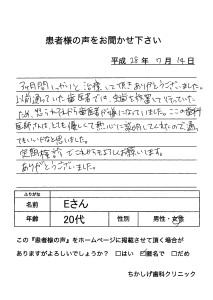 患者様の声をお聞かせ下さい
平成 28年 7月 14日
3ヶ月間しっかりと治療して頂きありがとうございました。
以前通っていた歯医者では、虫歯を放置して行っていた
ため、怒られそれ以来歯医者が嫌になっていました。ここの歯科
医師さんは、とても優しくて熱心に説明してくれたので通っ
てもいいかなと思いました。
定期検診でこれからもよろしくお願いします。
ありがとうございました。
ふりがな
名前 Eさん
年齢 20代 性別 男性・女性
この『患者様の声』をホームページに掲載させて頂く場合が
ありますがよろしいでしょうか? □はい ☑匿名で □だめ
ちかしげ歯科クリニック